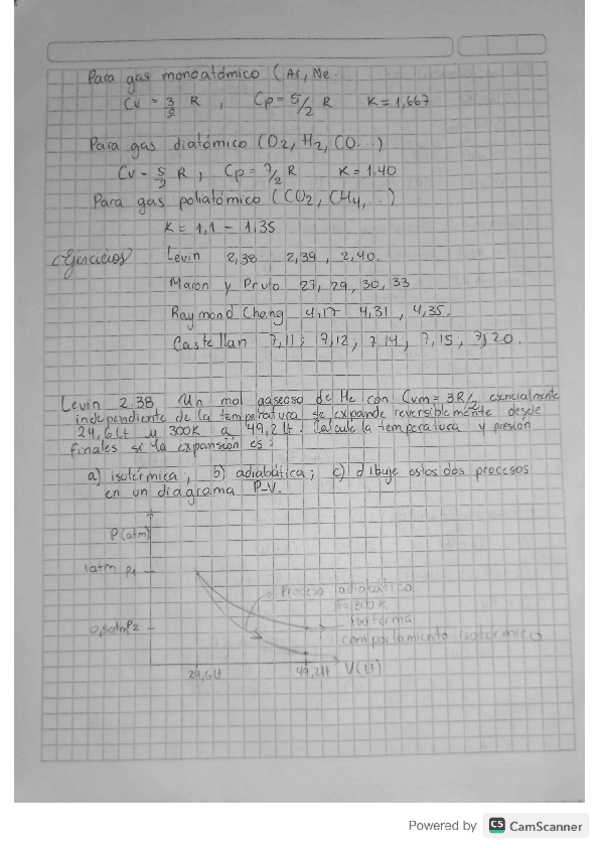 Para gas monoatómico (Ar, Ne.
Cv = 3/2 R , Cp = 5/2 R K = 1,667
Para gas diatómico (O2, H2, CO...)
Cv = 5/2 R , Cp = 7/2 R K = 1,40
Para gas poliatómico (CO2, CH4, ..)
K = 1,1 - 1,35
Ejercicios Levin 2,38 2,39 , 2,40.
Maron y Pruto 27, 29, 30, 33
Raymond Chang 4,17 4,31 , 4,35.
Castellan 7,11; 7,12; 7,14; 7,15; 7,20.
Levin 2.38 Un mol gaseoso de He con Cvm = 3R/2 esencialmente
independiente de la temperatura se expande reversiblemente desde
24,6 Lt y 300K a 49,2 Lt. Calcule la temperatura y presión
finales si la expansión es:
a) isotérmica, b) adiabática; c) dibuje estos dos procesos
en un diagrama P-V.
P(atm)
1atm P1
Proceso adiabático
T=300K
Isoterma
0,5atm P2
comportamiento isotérmico
24,6Lt 49,2Lt V(Lt)
Powered by CS CamScanner